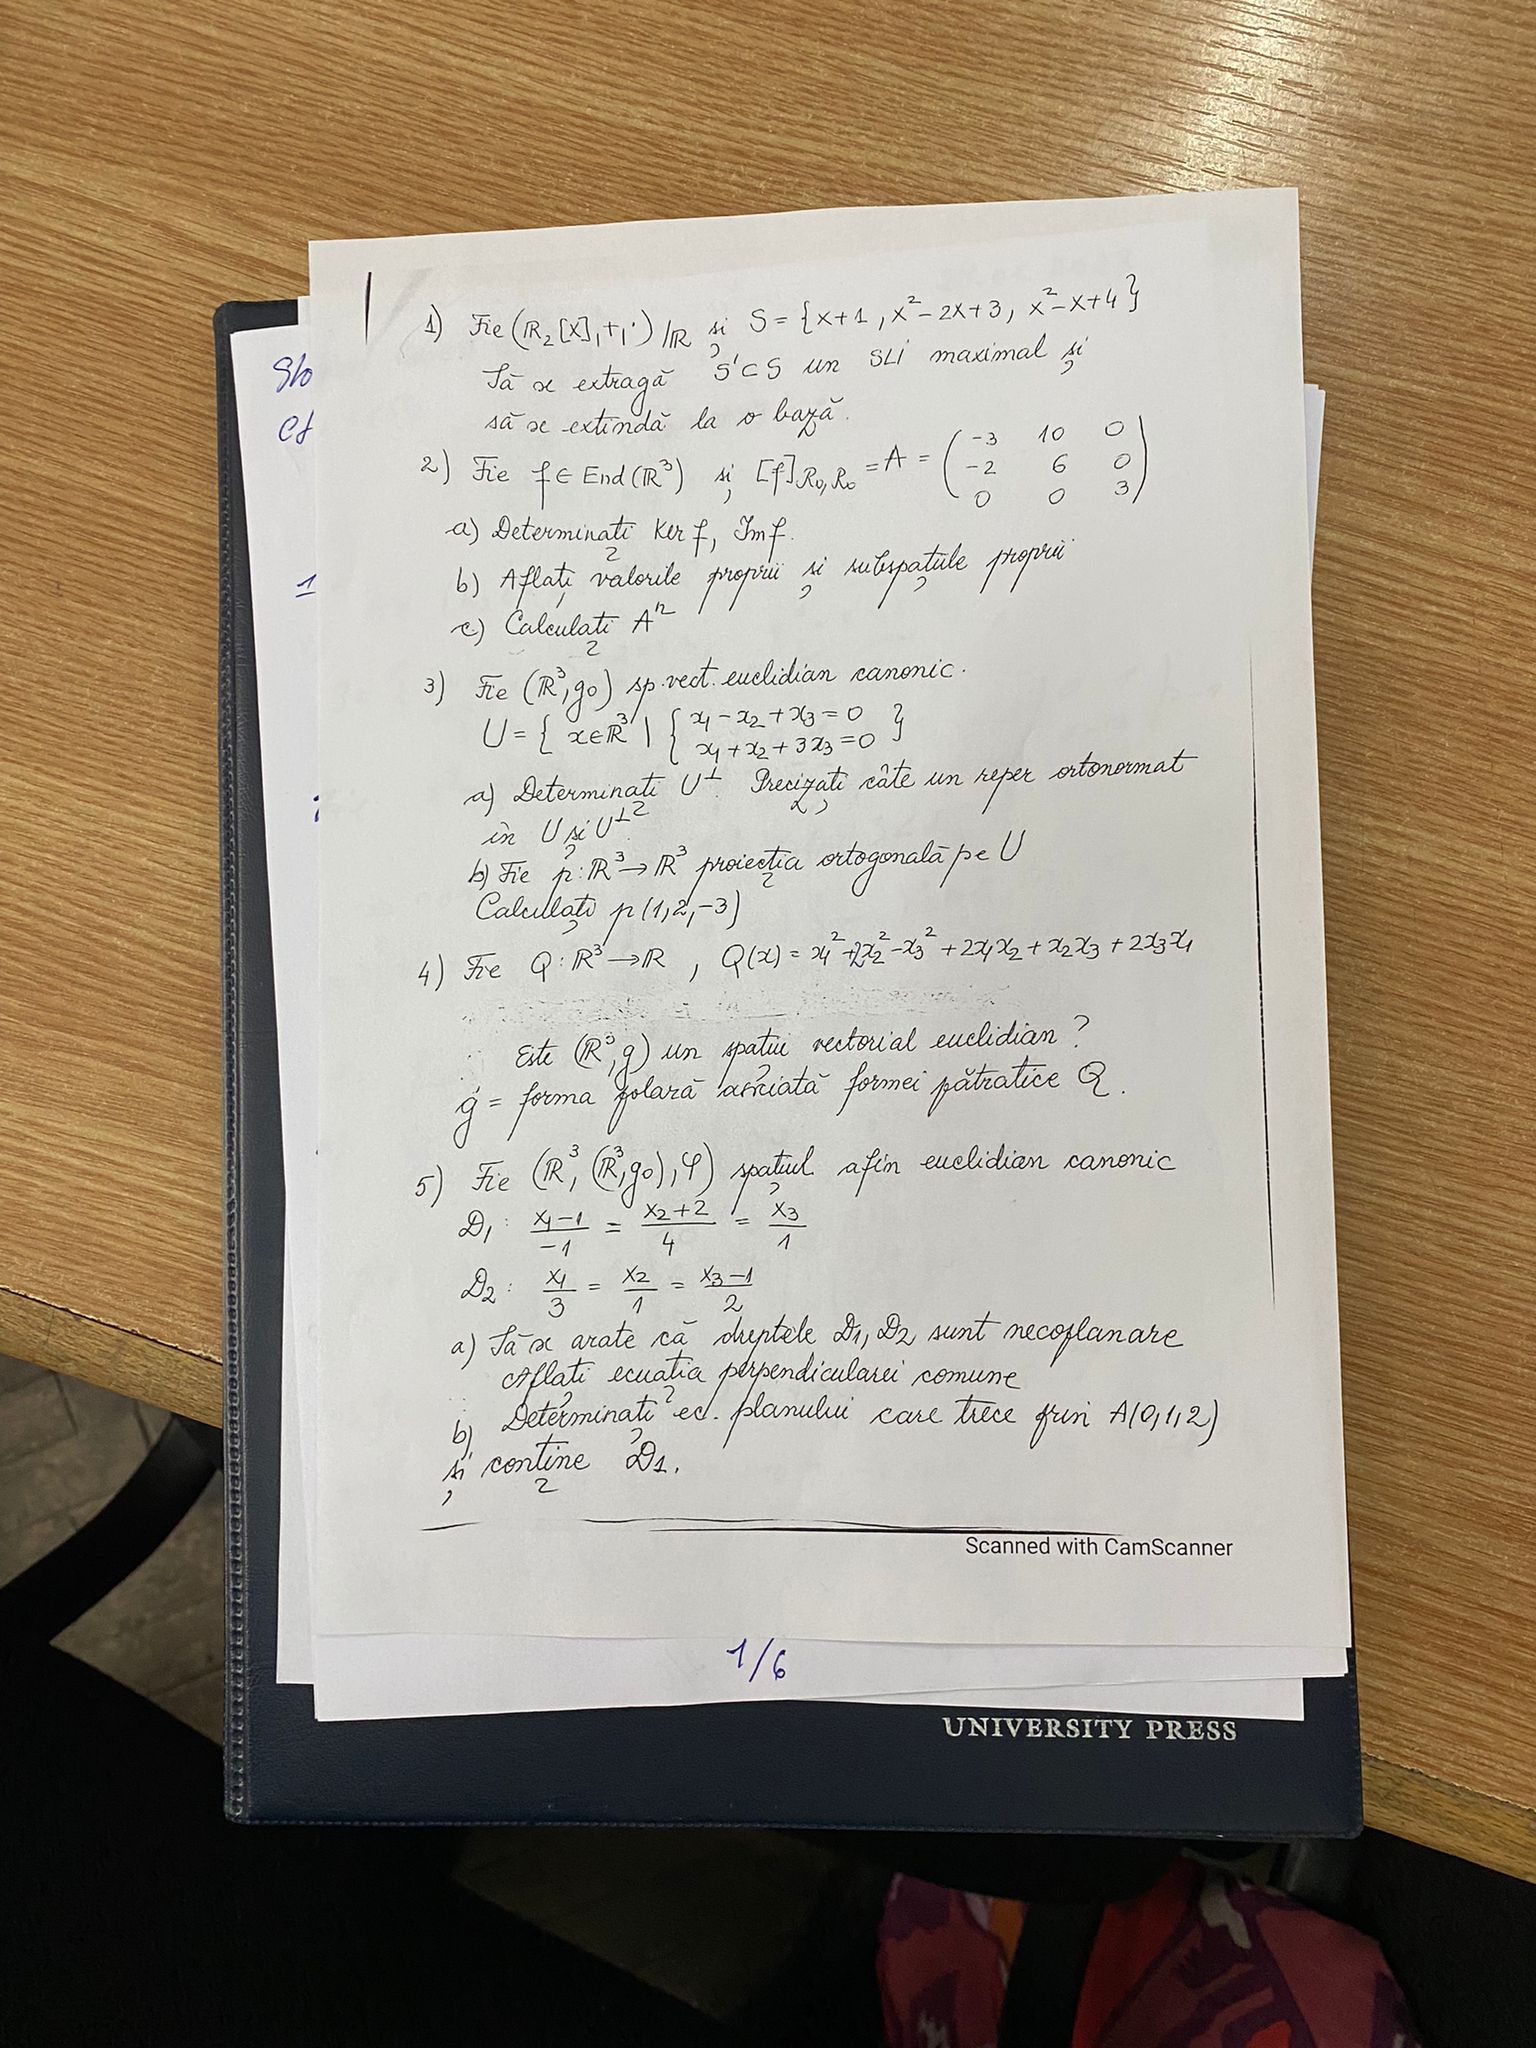 Sb
ef
1
1) Fie (ℝ₂[X],+,·)/ℝ și S = {X+1, X²-2X+3, X²-X+4}
Să se extragă S'⊂S un SLI maximal și
să se extindă la o bază.
2) Fie f ∈ End(ℝ³) și [f]R₀,R₀ = A = (-3 10 0
-2 6 0
0 0 3)
a) Determinați Ker f, Im f.
b) Aflați valorile proprii și subspațiile proprii
c) Calculați Aⁿ
3) Fie (ℝ³, g₀) sp. vect. euclidian canonic.
U = { x∈ℝ³ | { x₁ - x₂ + x₃ = 0
x₁ + x₂ + 3x₃ = 0 }
a) Determinați U⊥. Precizați câte un reper ortonormat
în U și U⊥.
b) Fie p: ℝ³ → ℝ³ proiecția ortogonală pe U
Calculați p(1,2,-3)
4) Fie Q: ℝ³ → ℝ, Q(x) = x₁² + 2x₂² - x₃² + 2x₁x₂ + x₂x₃ + 2x₃x₁
Este (ℝ³, g) un spațiu vectorial euclidian?
g = forma polară asociată formei pătratice Q.
5) Fie (ℝ³, (ℝ³, g₀), φ) spațiul afin euclidian canonic
D₁: (x₁-1)/-1 = (x₂+2)/4 = x₃/1
D₂: x₁/3 = x₂/1 = (x₃-1)/2
a) Să se arate că dreptele D₁, D₂ sunt necoplanare
Aflați ecuația perpendicularei comune
b) Determinați ec. planului care trece prin A(0,1,2)
și conține D₁.
Scanned with CamScanner
1/6
UNIVERSITY PRESS